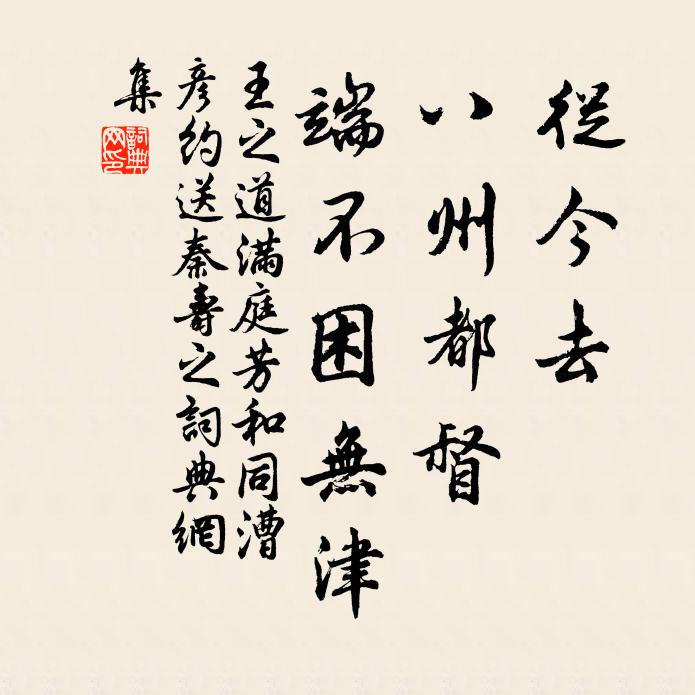 從今去
八州都督
端不困無津
王之道滿庭芳和同漕
彦約送秦壽之詞典網
集
詞典
网印